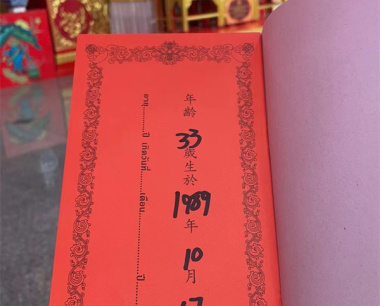 年齡 33 歲生於 1989 年 10 月 17
อายุ........ปี เกิดวันที่............เดือน............ปี